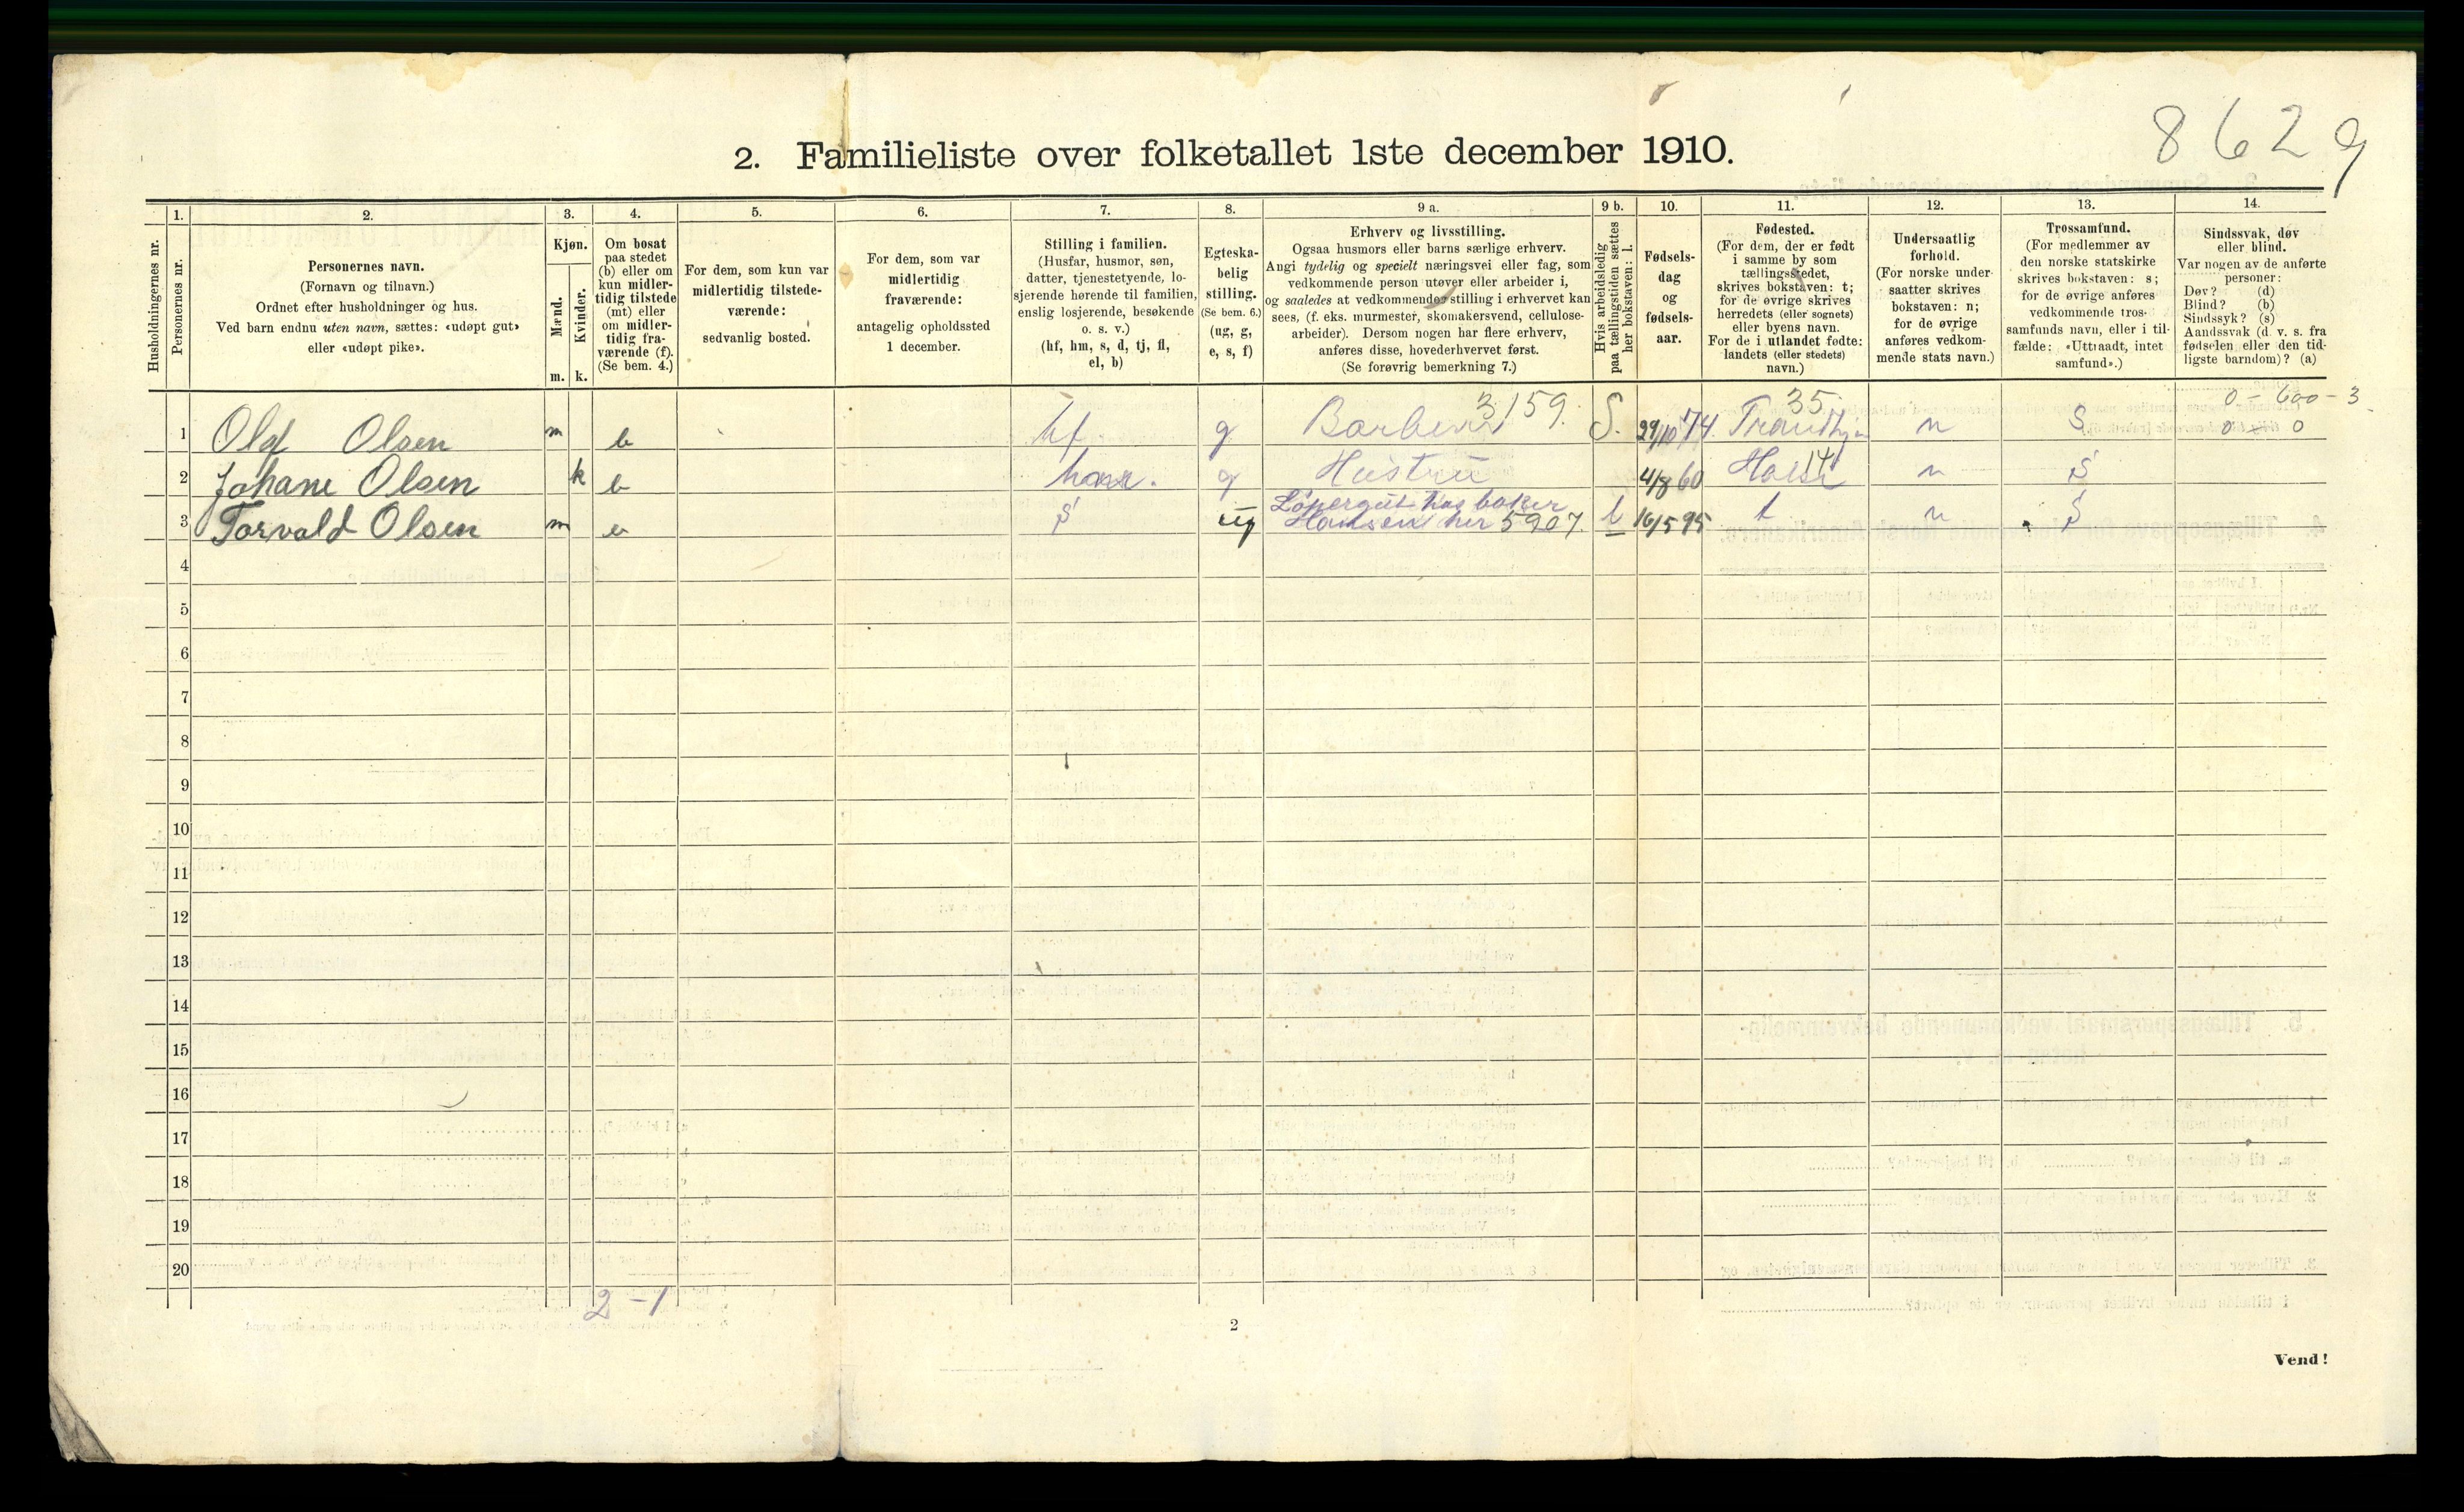 8629
2. Familieliste over folketallet 1ste december 1910.
Husholdningernes nr.
1. Personernes nr.
2. Personernes navn.
(Fornavn og tilnavn.)
Ordnet efter husholdninger og hus.
Ved barn endnu uten navn, sættes: «udøpt gut»
eller «udøpt pike».
3. Kjøn.
Mænd. m.
Kvinder. k.
4. Om bosat
paa stedet
(b) eller om
kun midler-
tidig tilstede
(mt) eller
om midler-
tidig fra-
værende (f).
(Se bem. 4.)
5. For dem, som kun var
midlertidig tilstede-
værende:
sedvanlig bosted.
6. For dem, som var
midlertidig
fraværende:
antagelig opholdssted
1 december.
7. Stilling i familien.
(Husfar, husmor, søn,
datter, tjenestetyende, lo-
sjerende hørende til familien,
enslig losjerende, besøkende
o. s. v.)
(hf, hm, s, d, tj, fl,
el, b)
8. Egteska-
belig
stilling.
(Se bem. 6.)
(ug, g,
e, s, f)
9 a. Erhverv og livsstilling.
Ogsaa husmors eller barns særlige erhverv.
Angi tydelig og specielt næringsvei eller fag, som
vedkommende person utøver eller arbeider i,
og saaledes at vedkommendes stilling i erhvervet kan
sees, (f. eks. murmester, skomakersvend, cellulose-
arbeider). Dersom nogen har flere erhverv,
anføres disse, hovederhvervet først.
(Se forøvrig bemerkning 7.)
9 b. Hvis arbeidsledig
paa tællingstiden sættes
her bokstaven: l.
10. Fødsels-
dag
og
fødsels-
aar.
11. Fødested.
(For dem, der er født
i samme by som
tællingsstedet,
skrives bokstaven: t;
for de øvrige skrives
herredets (eller sognets)
eller byens navn.
For de i utlandet fødte:
landets (eller stedets)
navn.)
12. Undersaatlig
forhold.
(For norske under-
saatter skrives
bokstaven: n;
for de øvrige
anføres vedkom-
mende stats navn.)
13. Trossamfund.
(For medlemmer av
den norske statskirke
skrives bokstaven: s;
for de øvrige anføres
vedkommende tros-
samfunds navn, eller i til-
fælde: «Uttraadt, intet
samfund».)
14. Sindssvak, døv
eller blind.
Var nogen av de anførte
personer:
Døv? (d)
Blind? (b)
Sindssyk? (s)
Aandssvak (d. v. s. fra
fødselen eller den tid-
ligste barndom)? (a)
3159. 35. 0 - 600 - 3
1 Olaf Olsen m b hf g Barber S. 29/10 74. Trondhjem n S 0 0
2 Johane Olsen k b g Hustru 4/8 60 14 n S
Løpergut hos baker
3 Torvald Olsen m b s ug Hansen her 5907. l 16/5 95 t n S
4
5
6
7
8
9
10
11
12
13
14
15
16
17
18
19
20
2 - 1
2
Vend!